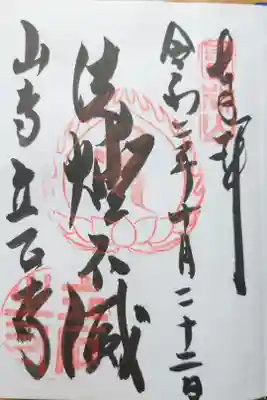 奉拝
令和二年十月二十二日
法燈不滅
山寺 立石寺